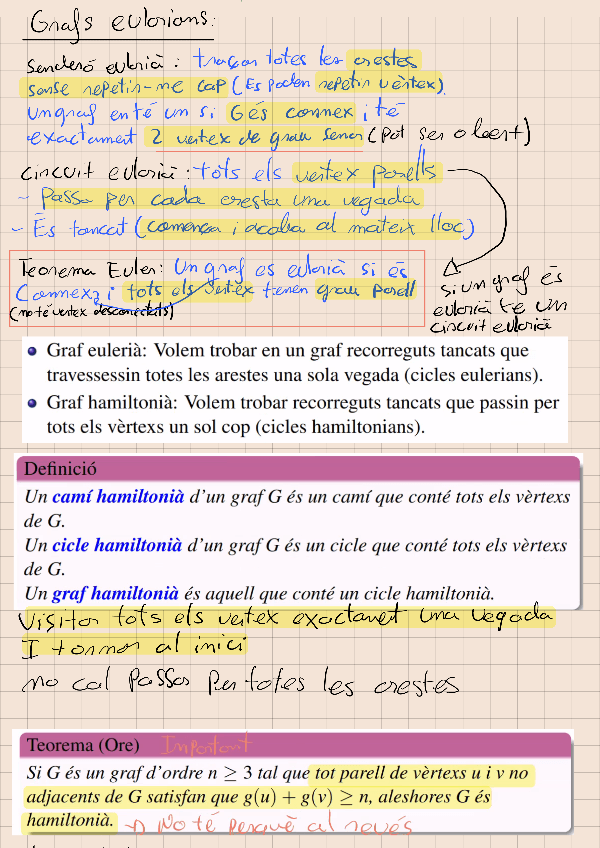 Grafs eulerians:
Senderó eulerià: traçar totes les arestes
sense repetir-ne cap (Es poden repetir vèrtex).
Un graf en té un si G és connex i té
exactament 2 vertex de grau senar (pot ser obert)
Circuit eulerià: tots els vertex parells
- Passa per cada aresta una vegada
- És tancat (comença i acaba al mateix lloc)
Teorema Euler: Un graf es eulerià si és
Connex, i tots els vertex tenen grau parell
(no té vertex desconectats)
si un graf és
eulerià te un
circuit eulerià
• Graf eulerià: Volem trobar en un graf recorreguts tancats que
travessessin totes les arestes una sola vegada (cicles eulerians).
• Graf hamiltonià: Volem trobar recorreguts tancats que passin per
tots els vèrtexs un sol cop (cicles hamiltonians).
Definició
Un camí hamiltonià d'un graf G és un camí que conté tots els vèrtexs
de G.
Un cicle hamiltonià d'un graf G és un cicle que conté tots els vèrtexs
de G.
Un graf hamiltonià és aquell que conté un cicle hamiltonià.
Visitar tots els vertex exactament una vegada
I tornar al inici
no cal passar per totes les arestes
Teorema (Ore) Important
Si G és un graf d'ordre n ≥ 3 tal que tot parell de vèrtexs u i v no
adjacents de G satisfan que g(u) + g(v) ≥ n, aleshores G és
hamiltonià. → No té perquè al revés